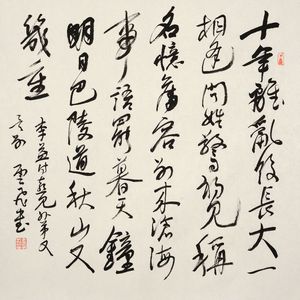 十年離亂後長大一
相逢問姓驚初見稱
名憶舊容別來滄海
事語罷暮天鐘
明日巴陵道秋山又
幾重
李益詩喜見外弟又
言別 書